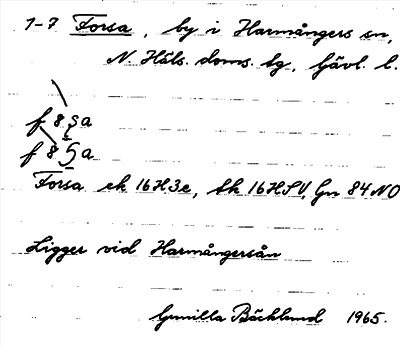 1-7 Forsa, by i Harmångers sn,
N. Häls. doms. tg, Gävl. l.
f 8 sa
f 8 5 a
Forsa ek 16H3e, tk 16HSV, Gn 84 NO
Ligger vid Harmångersån
Gunilla Bäcklund 1965.